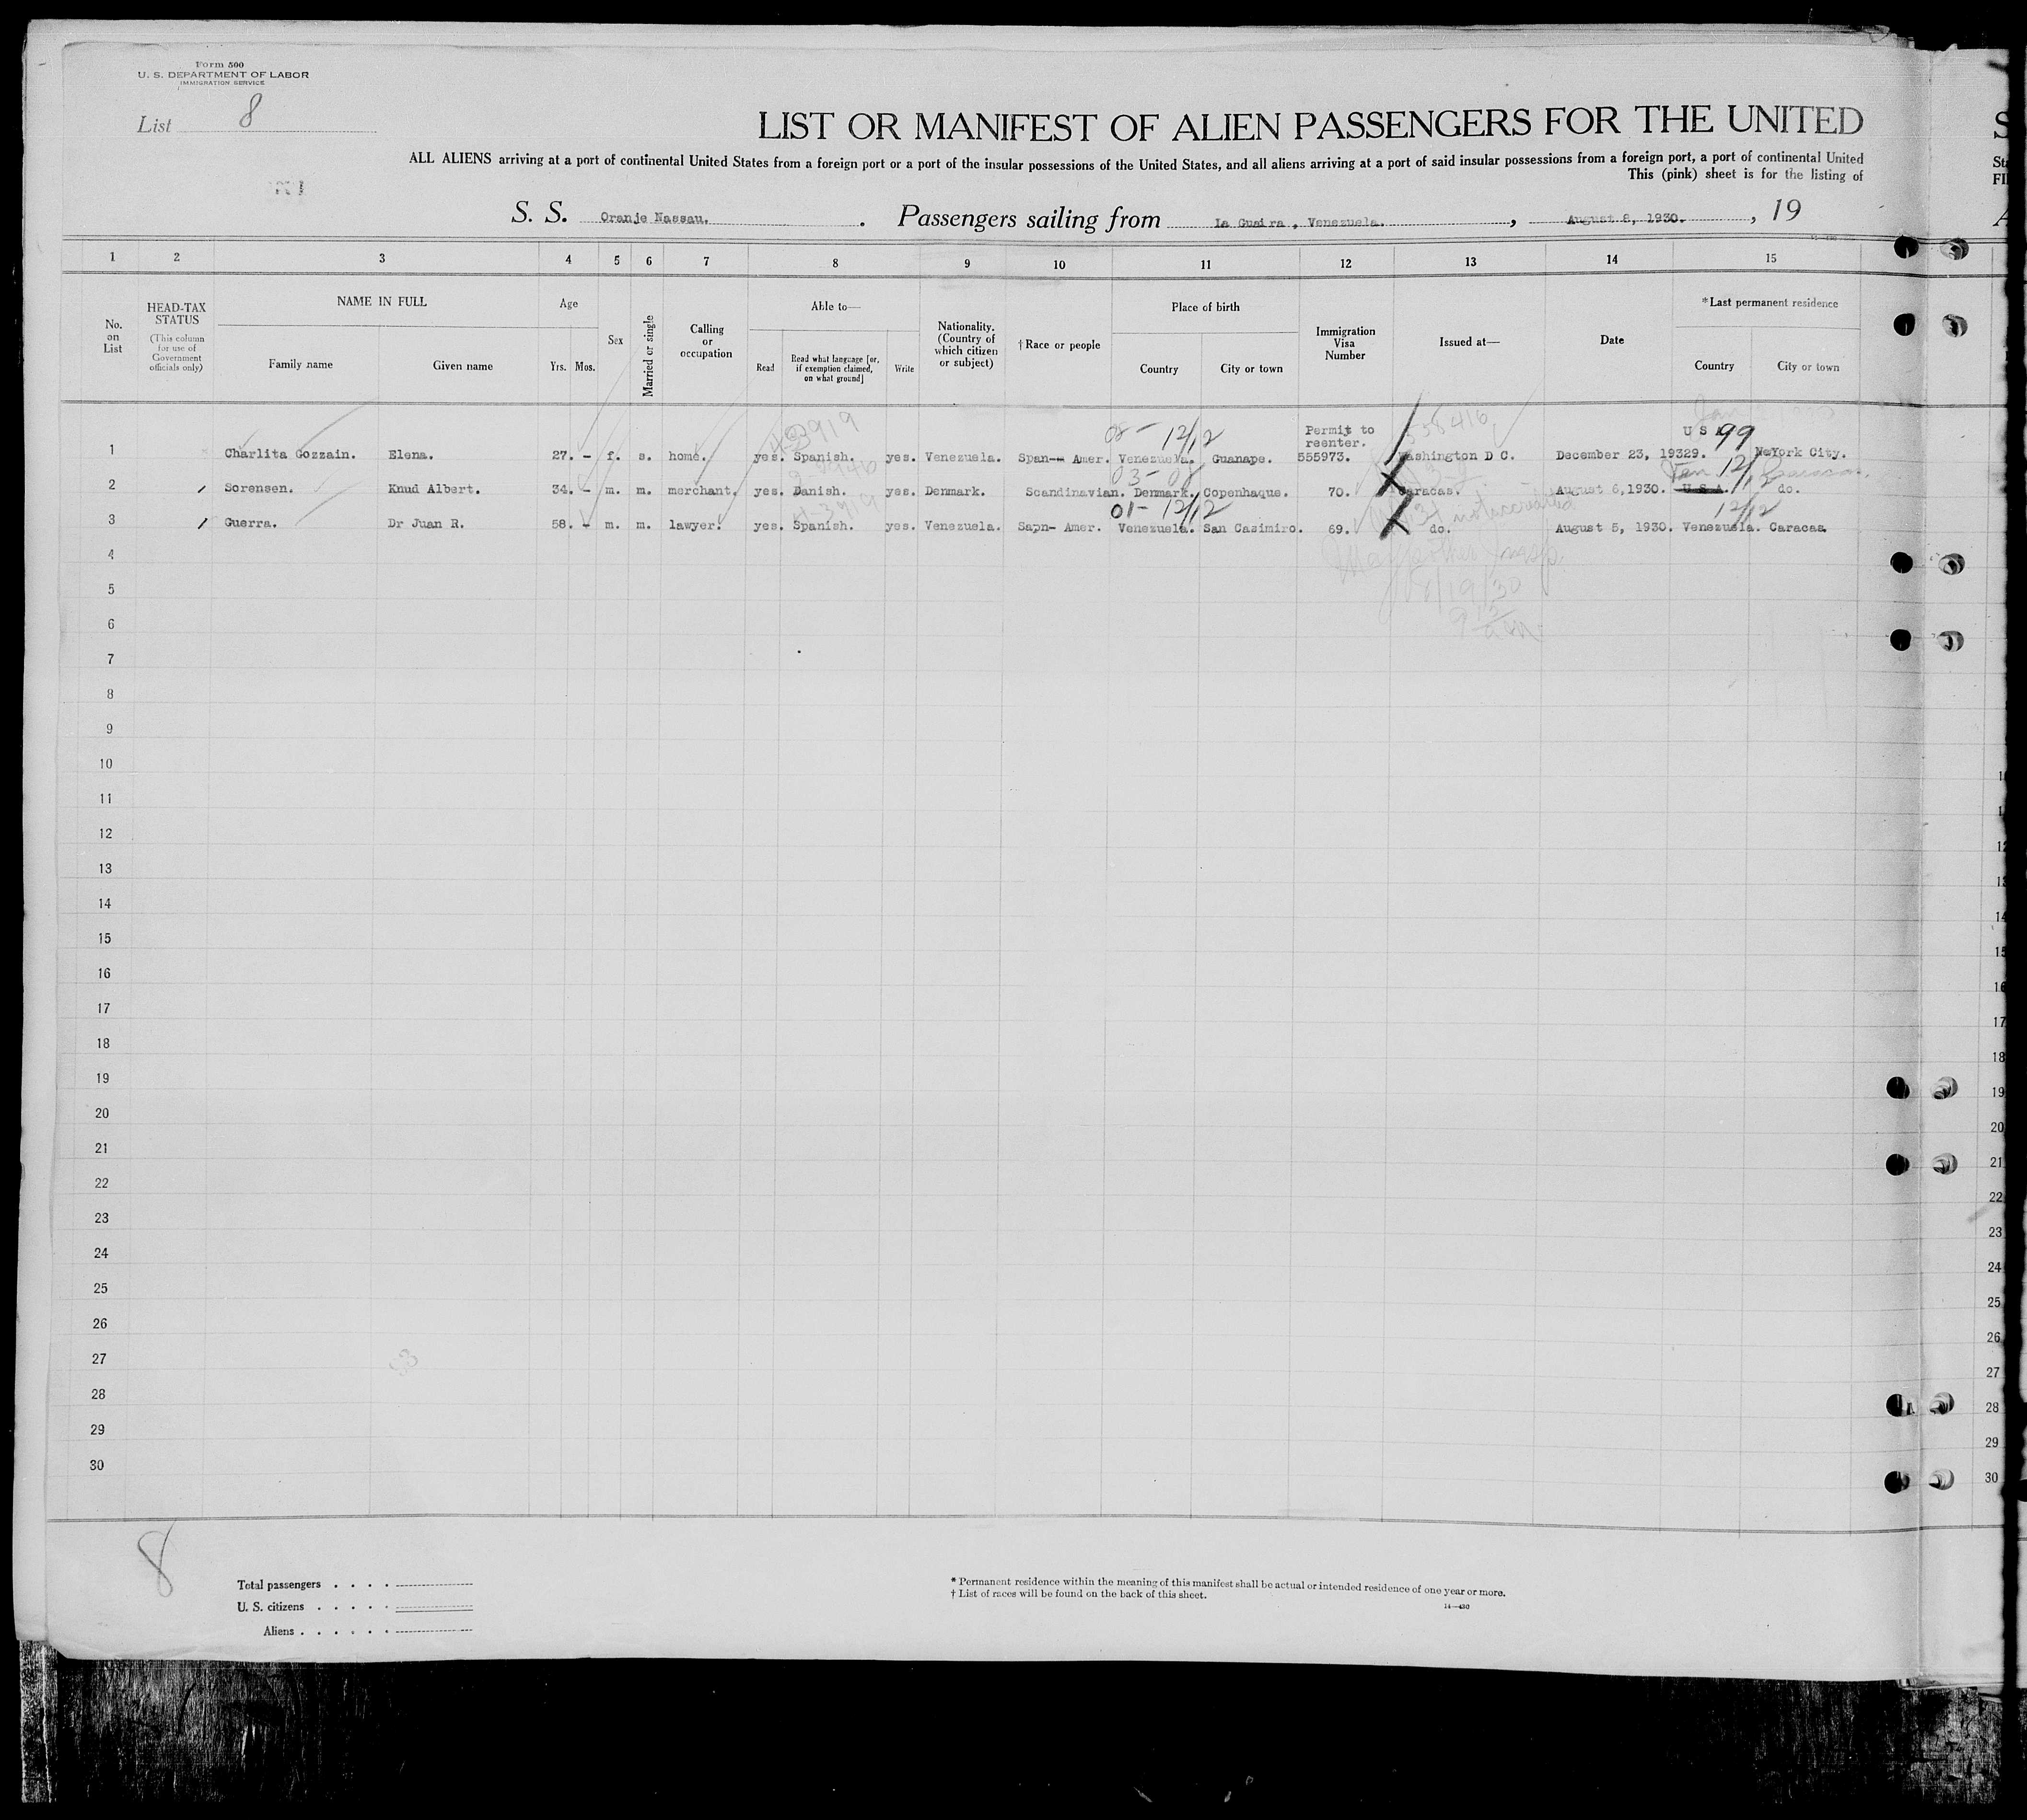 Form 500
U. S. DEPARTMENT OF LABOR
IMMIGRATION SERVICE
List 8
LIST OR MANIFEST OF ALIEN PASSENGERS FOR THE UNITED
ALL ALIENS arriving at a port of continental United States from a foreign port or a port of the insular possessions of the United States, and all aliens arriving at a port of said insular possessions from a foreign port, a port of continental United
This (pink) sheet is for the listing of
S. S. Oranje Nassau. . Passengers sailing from La Guaira, Venezuela. , August 8, 1930. , 19
1 2 3 4 5 6 7 8 9 10 11 12 13 14 15
No. on List
HEAD-TAX STATUS
(This column for use of Government officials only)
NAME IN FULL
Family name Given name
Age
Yrs. Mos.
Sex
Married or single
Calling or occupation
Able to—
Read Read what language [or, if exemption claimed, on what ground] Write
Nationality. (Country of which citizen or subject)
† Race or people
Place of birth
Country City or town
Immigration Visa Number
Issued at—
Date
* Last permanent residence
Country City or town
43919 08- 12/12 Permit to reenter. 558416 U S A 99
1 Charlita Gozzain. Elena. 27. - f. s. home. yes. Spanish. yes. Venezuela. Span-- Amer. Venezuela. Guanape. 555973. Washington D C. December 23, 19329. NeYork City.
03-08 Ven 12/12 Caracas.
2 Sorensen. Knud Albert. 34. - m. m. merchant. yes. Danish. yes. Denmark. Scandinavian. Denmark. Copenhaque. 70. Caracas. August 6,1930. U S A. do.
4-3919 01- 12/12 12/12
3 Guerra. Dr Juan R. 58. - m. m. lawyer. yes. Spanish. yes. Venezuela. Sapn- Amer. Venezuela. San Casimiro. 69. do. August 5, 1930. Venezuela. Caracas.
8/19/30
4
5
6
7
8
9
10
11
12
13
14
15
16
17
18
19
20
21
22
23
24
25
26
27
28
29
30
8
Total passengers . . . .
U. S. citizens . . . . .
Aliens . . . . . .
* Permanent residence within the meaning of this manifest shall be actual or intended residence of one year or more.
† List of races will be found on the back of this sheet.
14—430